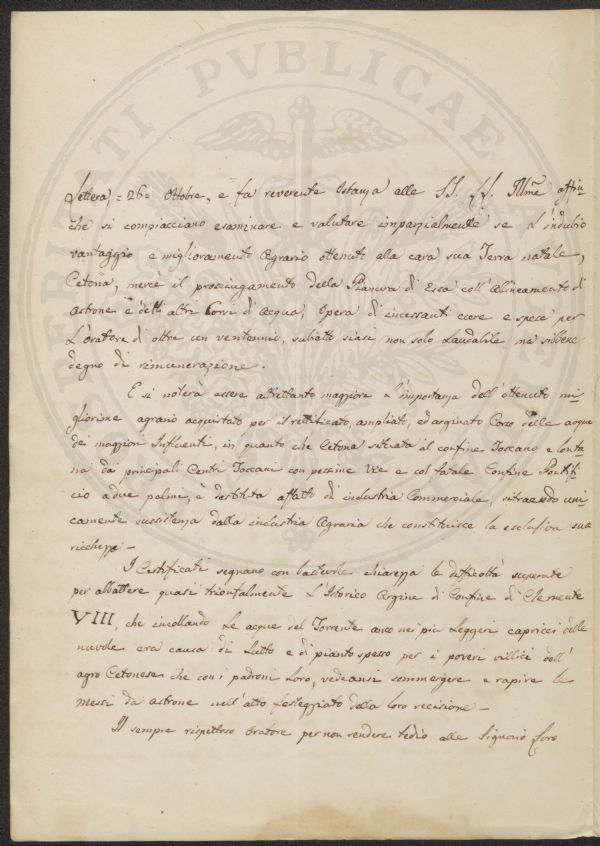 Lettera = 26 = Ottobre, e fa reverente Istanza alle SS. LL. Illme affin-
chè si compiacciano esaminare e valutare imparzialmente se L'indubio
vantaggio e miglioramento Agrario ottenuto alla cara sua Terra natale,
Cetona, mercè il prosciugamento della Pianura di Essa coll'Allineamento di
Astrone e delli altri Corsi di Acqua, Opera di incessanti cure e spese per
L'Oratore di oltre un ventennio, subiatti siasi non solo Laudabile ma sibbene
degno di rimunerazione.
E si noterà essere altrettanto maggiore L'importanza dell'ottenuto mi-
gliorime agrario acquistato per il rettificato, ampliato, ed arginato Corso delle acque
dei maggiori Influenti, in quanto che Cetona situata al confine Toscano e lonta-
na dai principali Centri Toscani con pessime Vie e col fatale Confine Pontifi-
cio a due palmi, è destituta affatto di industria Commerciale, ritraendo uni-
camente sussistenza dalla industria Agraria che constituisce la esclusiva sua
ricchezza –
I Certificati segnano con bastevole chiarezza le difficoltà superate
per abbattere quasi trionfalmente L'Istorico Argine di Confine di Clemente
VIII, che incollando Le acque del Torrente anco nei più Leggeri capricci delle
nuvole era causa di Lutto e di pianto spesso per i poveri villici dell'
agro Cetonese che con i padroni Loro, vedeansi sommergere e rapire le
Messi da Astrone nell'atto festeggiato della loro recisione –
Il sempre rispettoso Oratore per non rendere tedio alle Signorie Loro
PERIDATI PVBLICAE